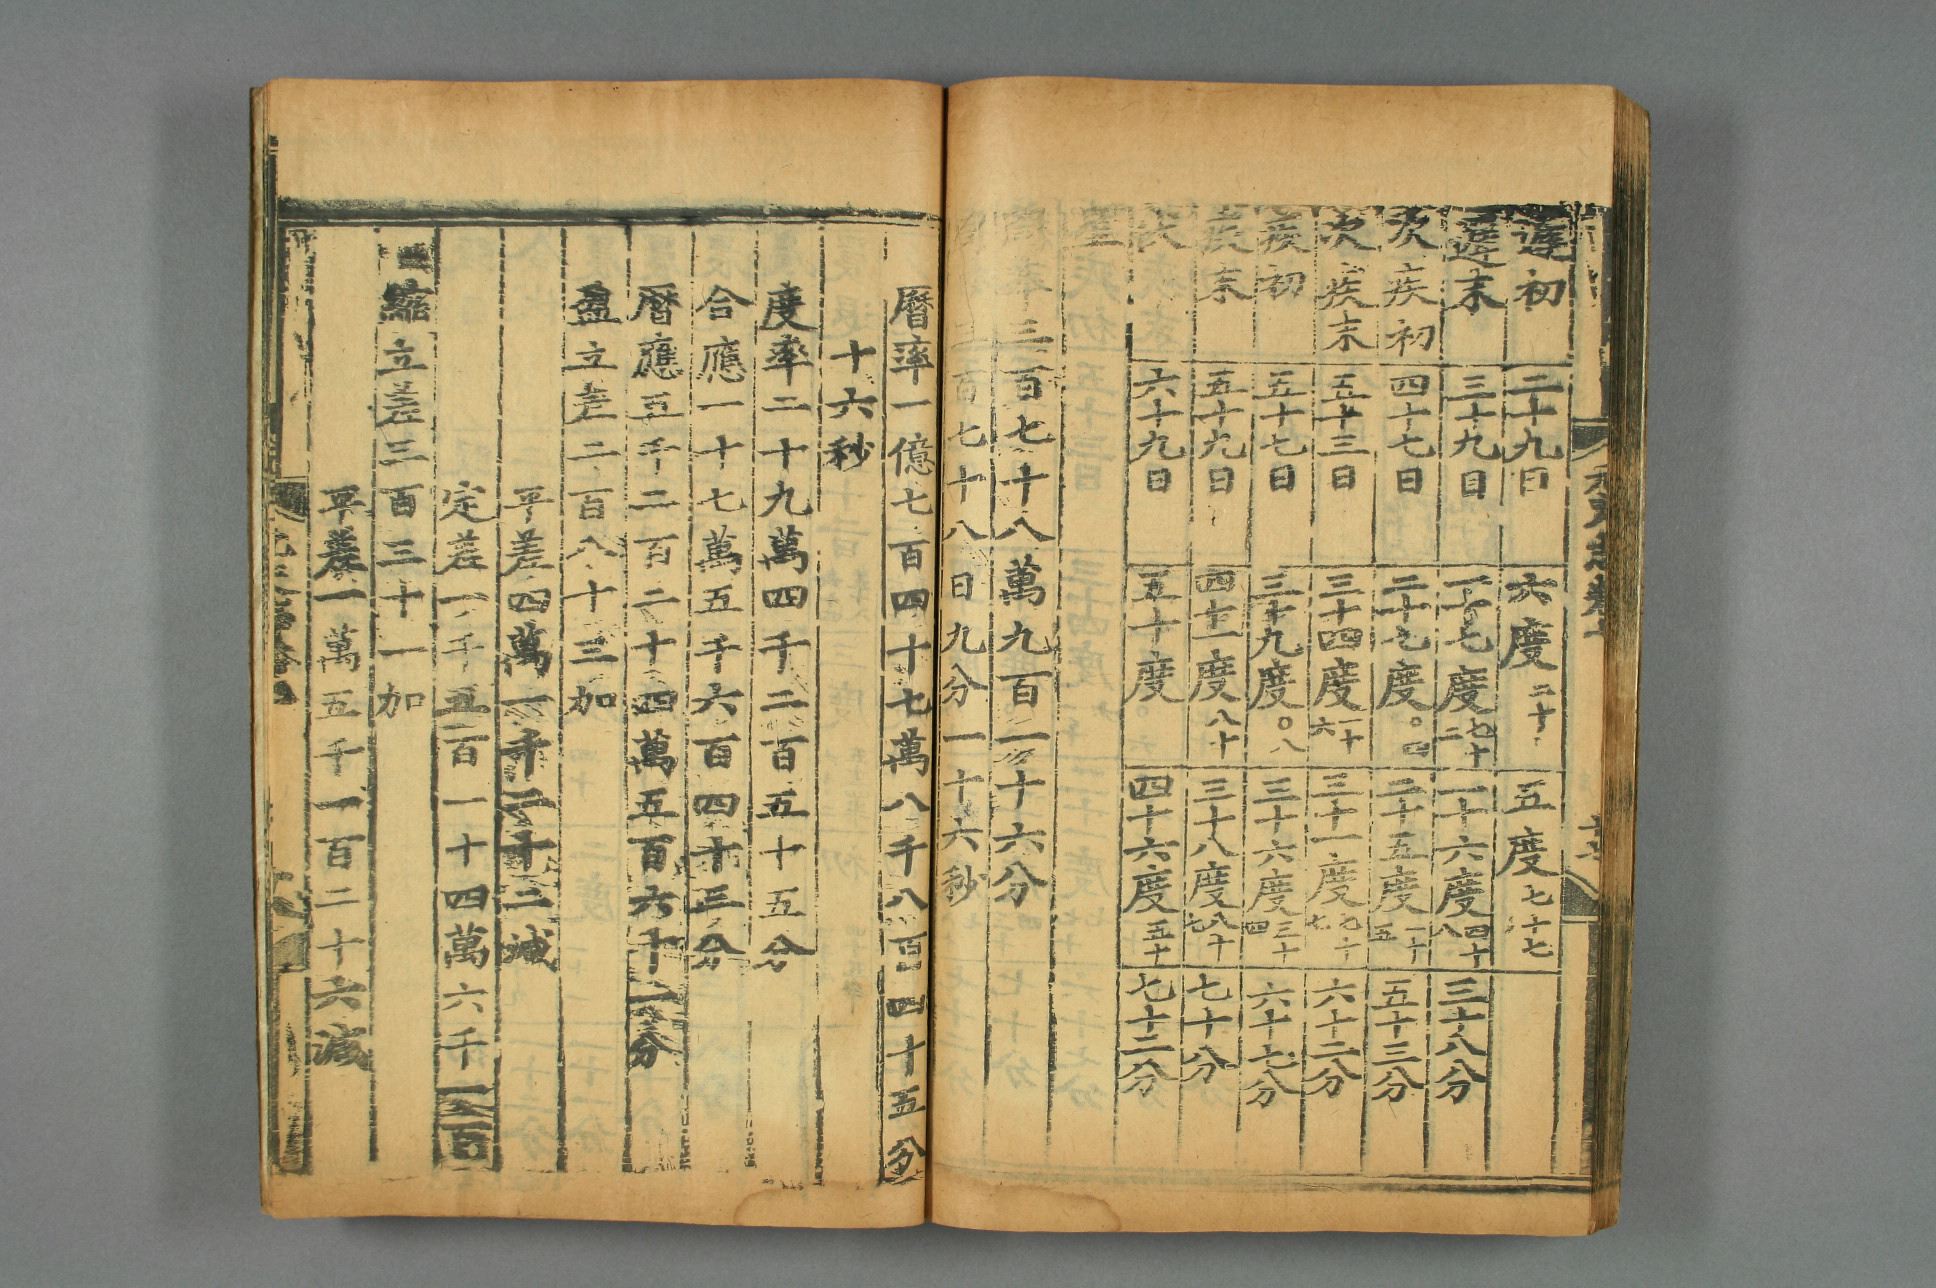 元史志卷七
遲初 二十九日 六度二十 五度七十七
遲末 三十九日 一十七度七十二 一十六度四十八 三十八分
次疾初 四十七日 二十七度〇四 二十五度一十五 五十三分
次疾末 五十三日 三十四度一十六 三十一度九十七 六十二分
疾初 五十七日 三十九度〇八 三十六度三十四 六十七分
疾末 五十九日 四十一度八十 三十八度八十七 七十分
伏 六十九日 五十度 四十六度五十 七十二分
周率三百七十八萬九百一十六分
三百七十八日九分一十六秒
曆率一億七百四十七萬八千八百四十五分
十六秒
度率二十九萬四千二百五十五分
合應一十七萬五千六百四十三分
曆應五千二百二十四萬五百六十一分
盈立差二百八十三加
平差四萬一千二十二減
定差一千五百一十四萬六千一百
縮立差三百三十一加
平差一萬五千一百二十六減